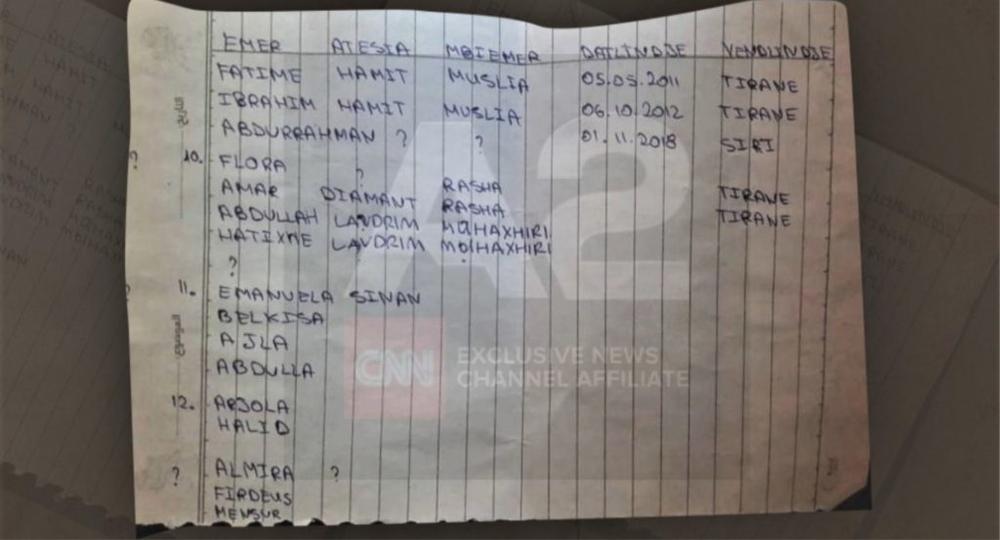 EMER ATESIA MBIEMER DATLINDJE VENDLINDJE
FATIME HAMIT MUSLIA 05.05.2011 TIRANE
IBRAHIM HAMIT MUSLIA 06.10.2012 TIRANE
ABDURRAHMAN ? ? 01.11.2018 SIRI
? 10. FLORA ?
AMAR DIAMANT RASHA TIRANE
ABDULLAH LAVDRIM RASHA TIRANE
HATIXHE LAVDRIM MUHAXHIRI
MUHAXHIRI
?
11. EMANUELA SINAN
BELKISA
AJLA
ABDULLA
12. ARJOLA
HALID
? ALMIRA ?
FIRDEUS
MENSUR
A2
CNN EXCLUSIVE NEWS
CHANNEL AFFILIATE